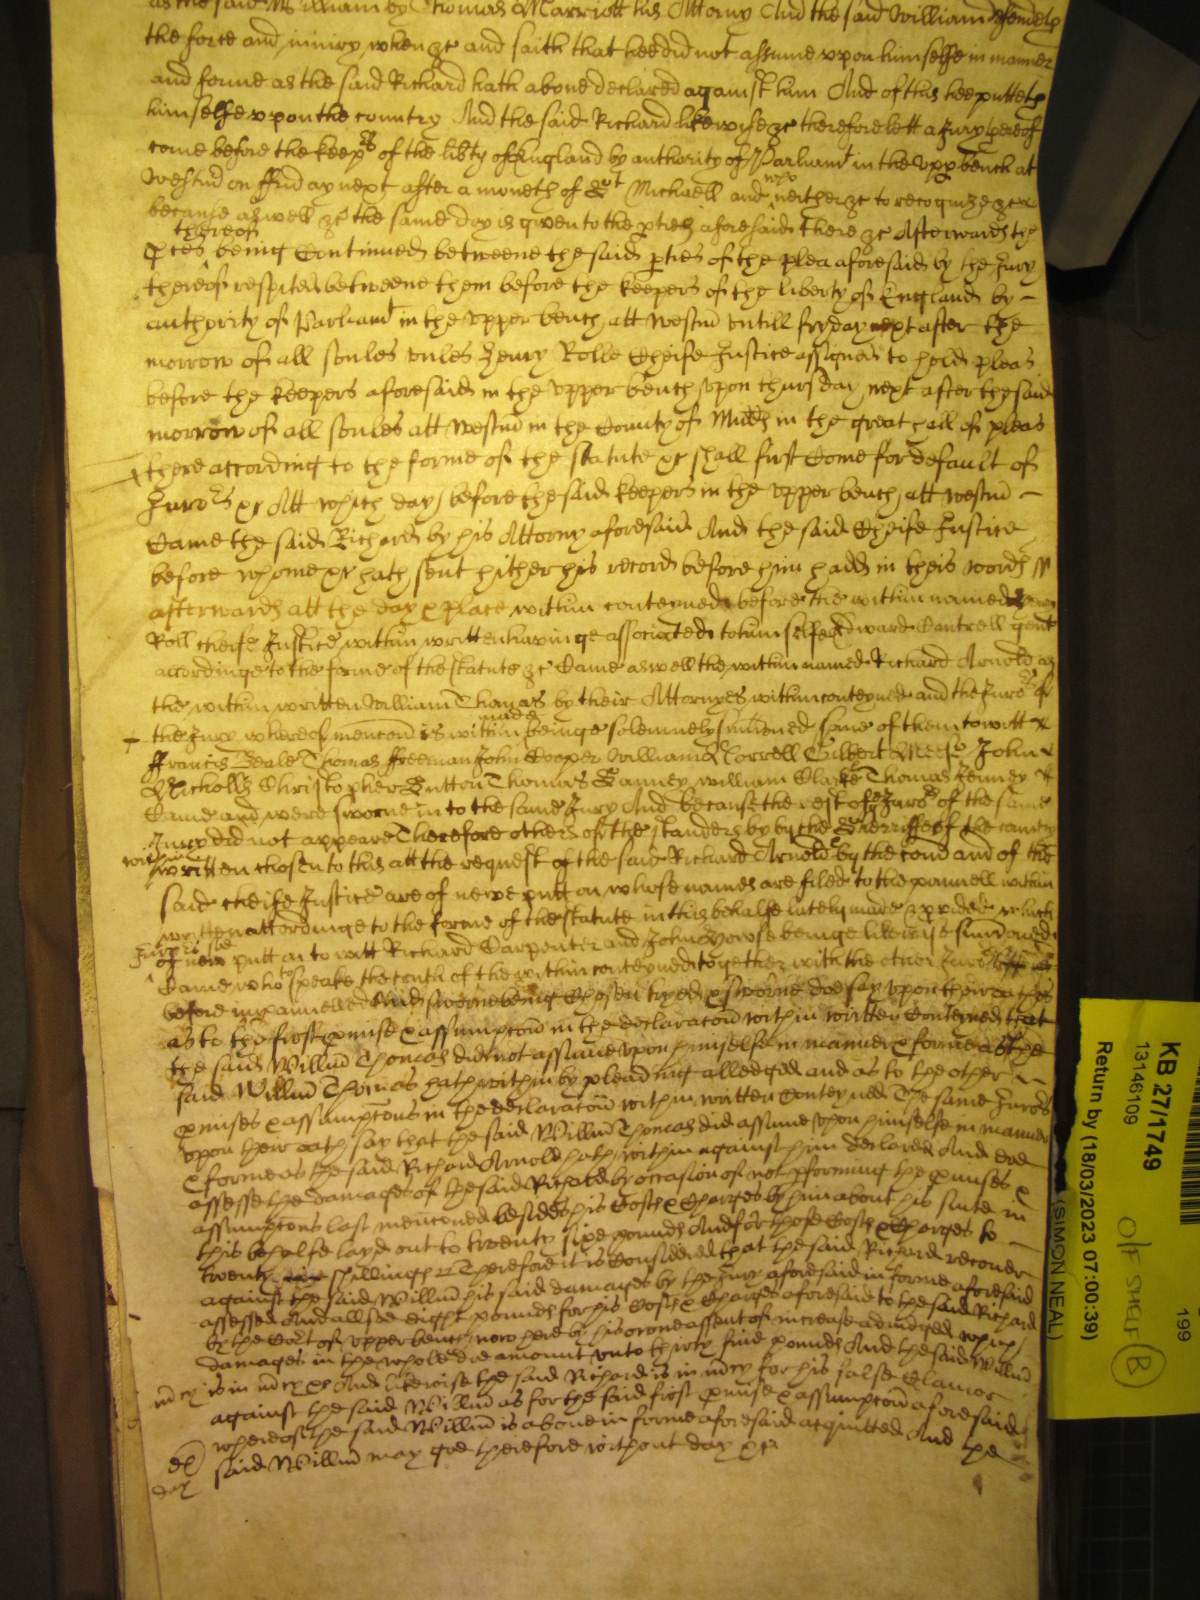 as the said William by Thomas Marriott his Attorny And the said William defendeth
the force and iniury when &c and saith that hee did not assume upon himselfe in manner
and forme as the said Richard hath above declared against him And of this hee putteth
himselfe upon the country And the said Richard likewise &c therefore lett a Jury thereof
come before the keeprs of the libty of England by authority of Parliamt in the uppr bench at
Westm on Friday next after a moneth of St Michaell and who neither &c to recognize &c
because aswell &c the same day is given to the pties aforesaid there &c Afterwards the
pces thereof being Continued betweene the said pties of the plea aforesaid by the Jury
thereof respited betweene them before the keepers of the liberty of England by
authority of Parliamt in the upper bench att Westm untill fryday next after the
morrow of all soules unles Henry Rolle Cheife Justice assigned to hold pleas
before the keepers aforesaid in the upper bench upon thursday next after the said
morrow of all soules att Westm in the County of Midds in the great hall of pleas
there according to the forme of the statute &c shall first Come for default of
Jurors &c Att which day before the said keepers in the upper bench att westm
Came the said Richard by his Attorny aforesaid And the said Cheife Justice
before whome &c hath sent hither his record before him hadd in theis words ss
afterwards att the day & place within conteyned before the within named Henry
Roll cheife Justice within written havinge associated to himselfe Edward Cantrell gent
accordinge to the forme of the statute &c Came aswell the within named Richard Arnold as
the within written William Thomas by their Attornyes within conteyned and the Jurors of
the Jury whereof mencon is within made beinge solemnely sumoned some of them to witt
Francis Beale Thomas Freeman John Cooper William Gilbert John
Nicholls Christopher Sutton Thomas William Clarke Thomas Kenney
Came and were sworne in to the same Jury And because the rest of ye Jurors of the same
Jury did not appeare Therefore others of the standers by by the Sherriffe of the county
within written chosen to this att the request of the said Richard Arnold & by the comd of the
said cheife Justice are of newe putt on whose names are filed to the pannell within
written accordinge to the forme of the statute in this behalfe lately made & pvided which
Jurors soe of new putt on to witt Richard Carpenter and John beinge likewise sumoned
Came who to speake the truth of the within conteyned together with the other Jurors
before impannelled And sworne being Chosen tryed & sworne doe say upon their oathes
as to the first pmise & assumpcon in the declaracon within written Conteyned that
the said Willm Thomas did not assume upon himselfe in manner & forme as the
said Willm Thomas hath within by pleading alledged and as to the other
pmises & assumptons in the declaracon within written Conteyned The same Jurors
upon their oath say that the said Willm Thomas did assume upon himselfe in manner
& forme as the said Richard Arnold hath within against him declared And doe
assesse the damages of the said Richard by occasion of not pforming the pmises &
assumptons last mencioned besides his Costs & Charges by him about his suite in
this behalfe layd out to twenty sixe pounds And for those Costs & Charges to
twenty shillings Therefore it is Considered that the said Richard recover
against the said Willm his said damages by the Jury aforesaid in forme aforesaid
assessed And allsoe eight pounds for his Costs & Charges aforesaid to the said Richard
by the Cort of upper bench now here by his owne assent of increase adiudged which
damages in the whole doe amount unto thirty five pounds And the said Willm
m cy is in m cy &c And likewise the said Richard is in m cy for his false Clamor
against the said Willm as for the said first pmise & assumptcon aforesaid
whereof the said Willm is above in forme aforesaid acquitted And the
said Willm may goe thereof without day &c
KB 27/1749
13146109
Return by (18/03/2023 07:00:39)
(SIMON NEAL)
O/F SHELF B
199